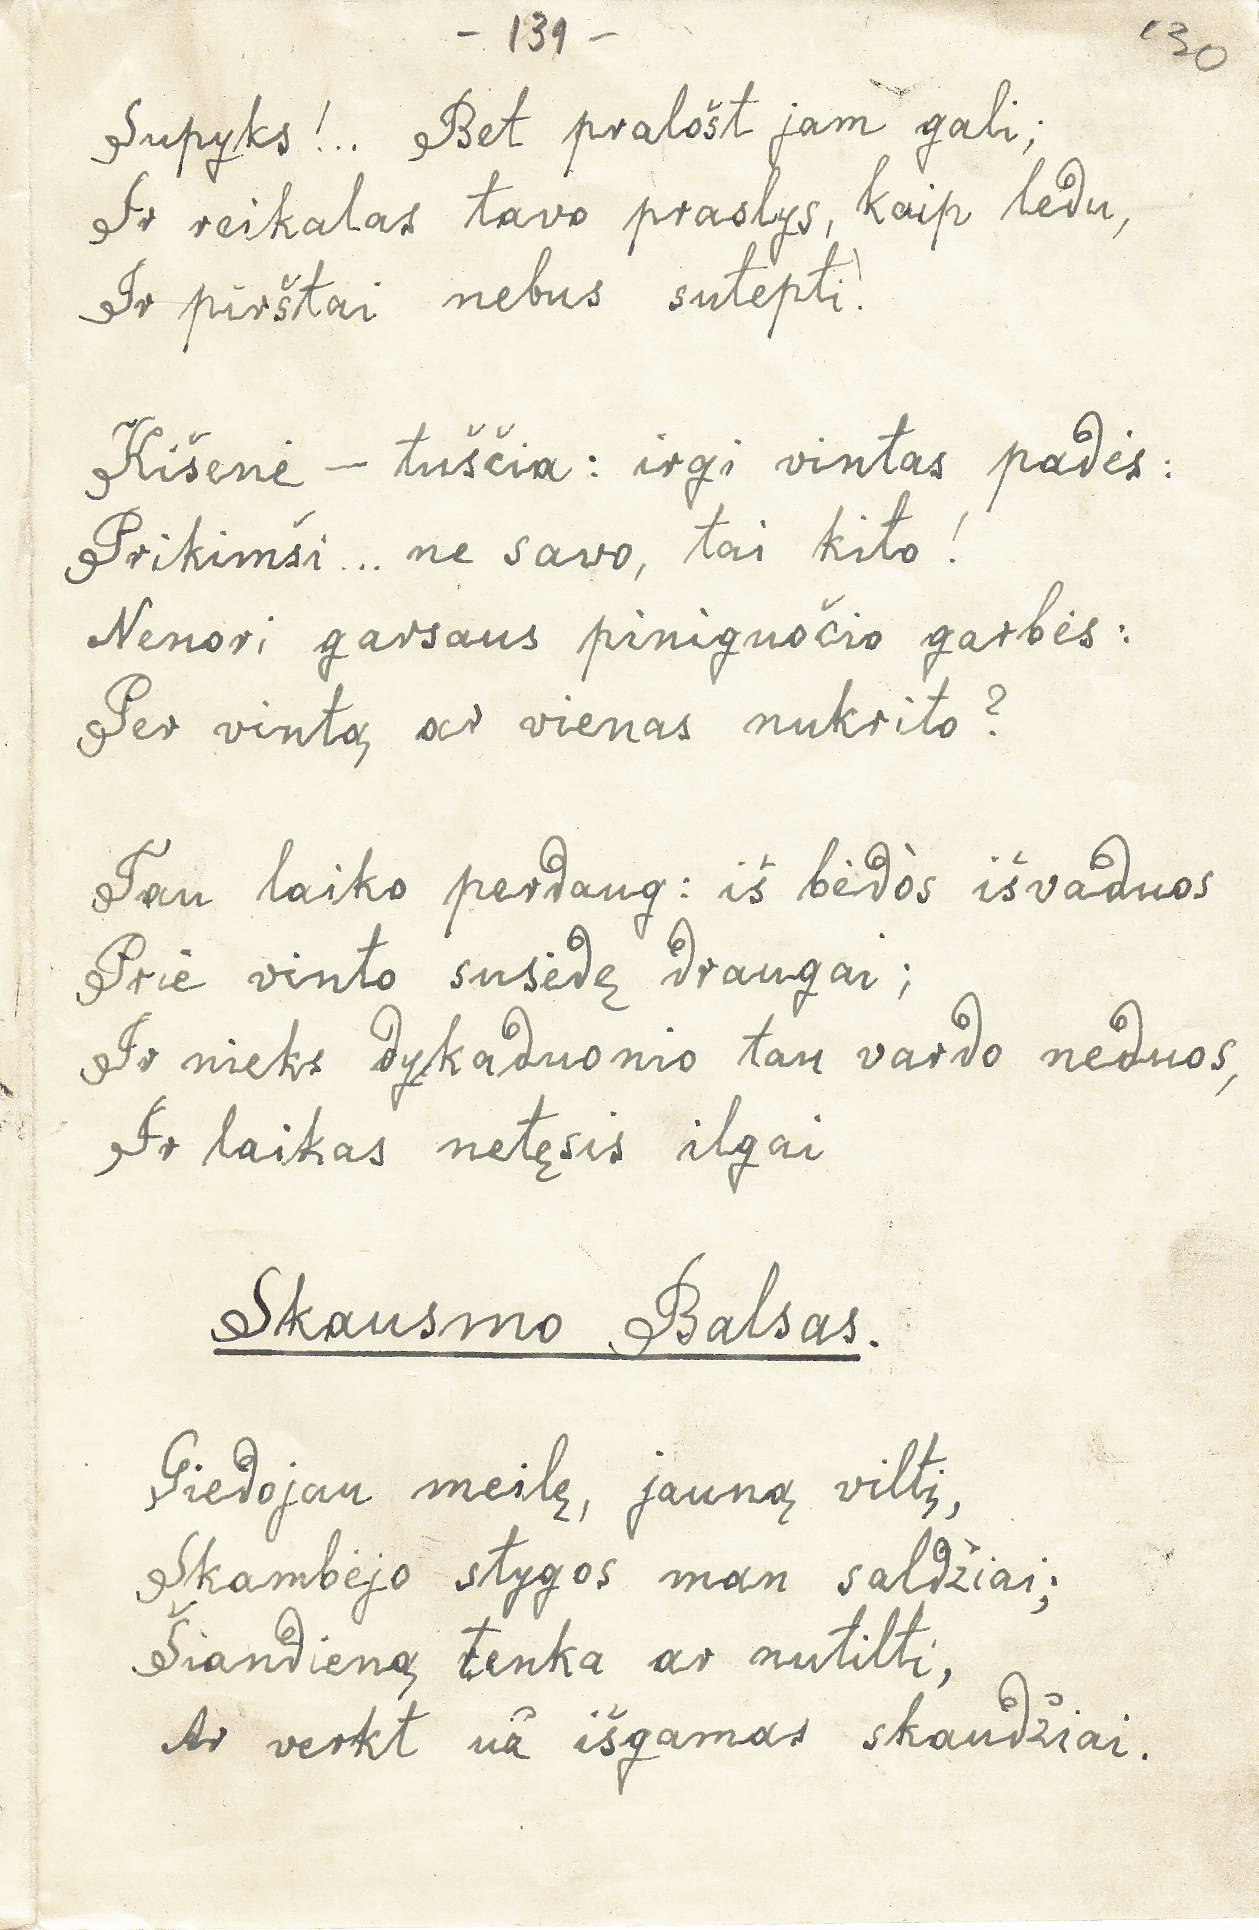 - 139 -
130
Supyks!.. Bet pralošt jam gali;
Ir reikalas tavo praslys, kaip ledu,
Ir pirštai nebus sutepti!
Kišenė — tuščia: irgi vintas padės:
Prikimši... ne savo, tai kito!
Nenori garsaus piniguočio garbės:
Per vintą ar vienas nukrito?
Tau laiko perdaug: iš bėdòs išvaduos
Prie vinto susėdę draugai;
Ir nieks dykaduonio tau vardo neduos,
Ir laikas netęsis ilgai
Skausmo Balsas.
Giedojau meilę, jauną viltį,
Skambėjo stygos man saldžiai;
Šiandieną tenka ar nutilti,
Ar verkt už išgamas skaudžiai.